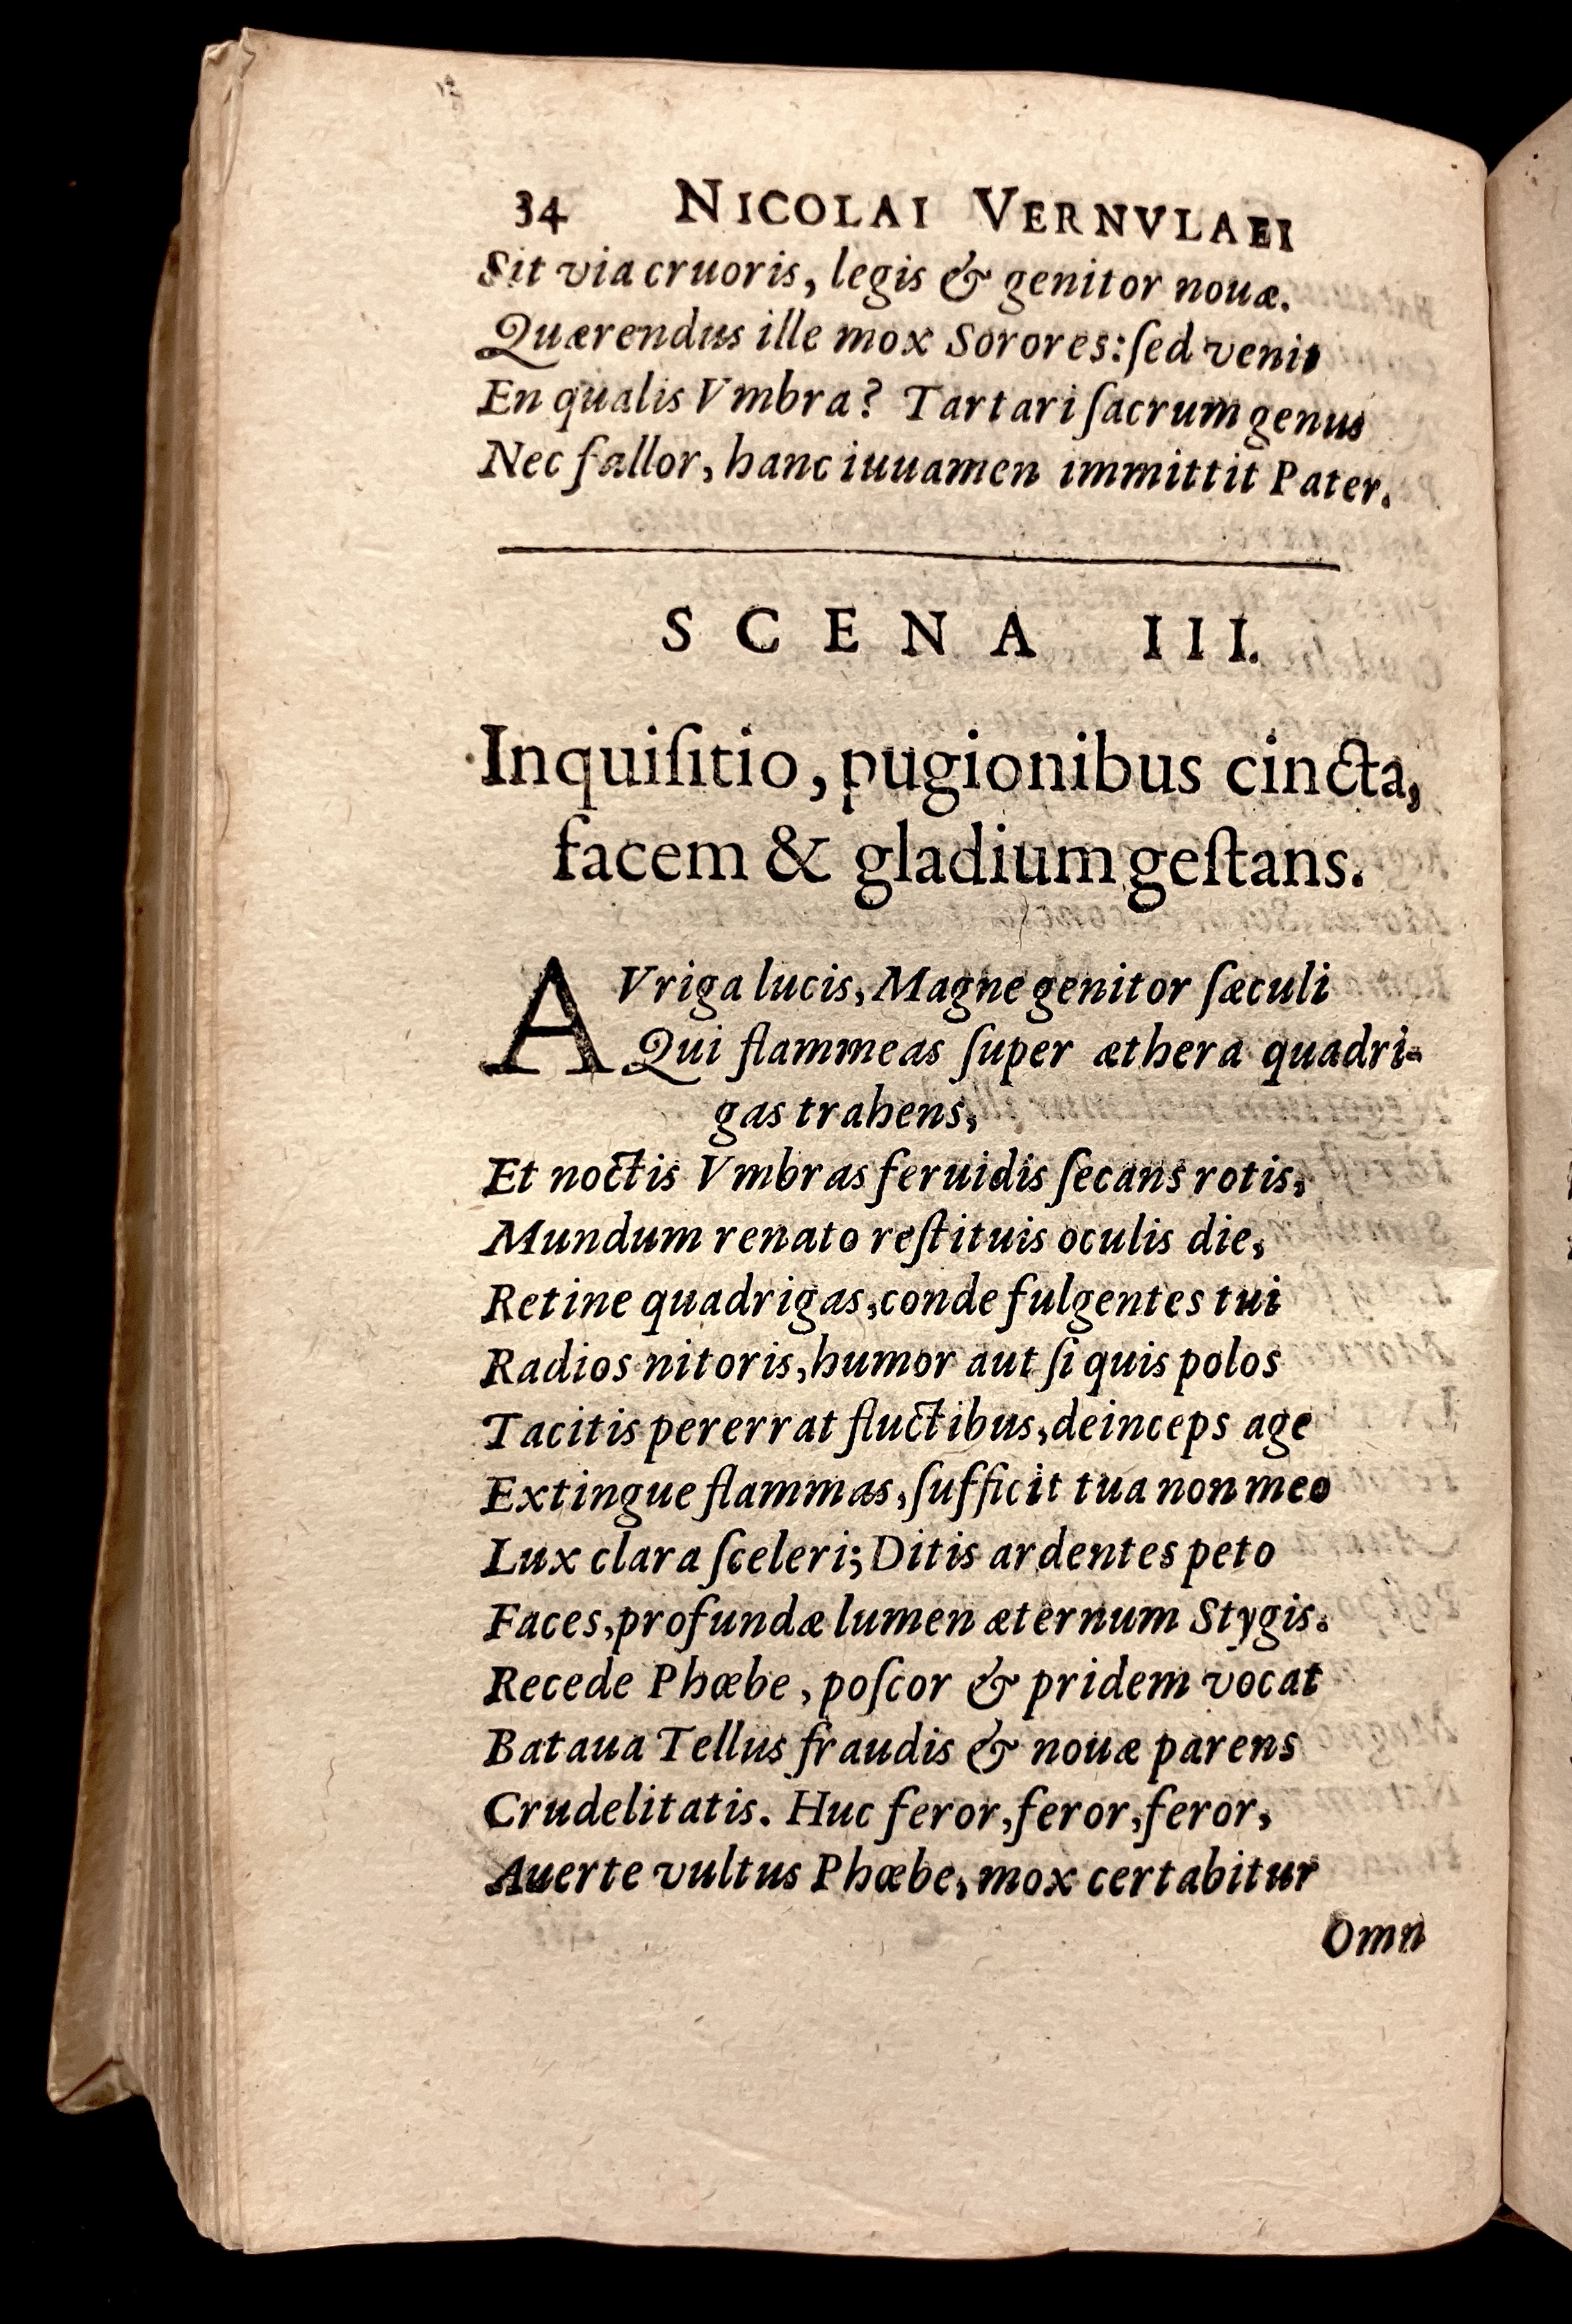 34 NICOLAI VERNVLAEI
Sit via cruoris, legis & genitor nouæ.
Quærendus ille mox Sorores: ſed venit
En qualis Vmbra? Tartari ſacrum genus
Nec fallor, hanc iuuamen immittit Pater.
SCENA III.
Inquiſitio, pugionibus cincta,
facem & gladium geſtans.
AVriga lucis, Magne genitor ſæculi
Qui flammeas ſuper æthera quadri-
gas trahens,
Et noctis Vmbras feruidis ſecans rotis,
Mundum renato reſtituis oculis die,
Retine quadrigas, conde fulgentes tui
Radios nitoris, humor aut ſi quis polos
Tacitis pererrat fluctibus, deinceps age
Extingue flammas, ſufficit tua non meo
Lux clara ſceleri; Ditis ardentes peto
Faces, profundæ lumen æternum Stygis.
Recede Phœbe, poſcor & pridem vocat
Bataua Tellus fraudis & nouæ parens
Crudelitatis. Huc feror, feror, feror,
Auerte vultus Phœbe, mox certabitur
Omn